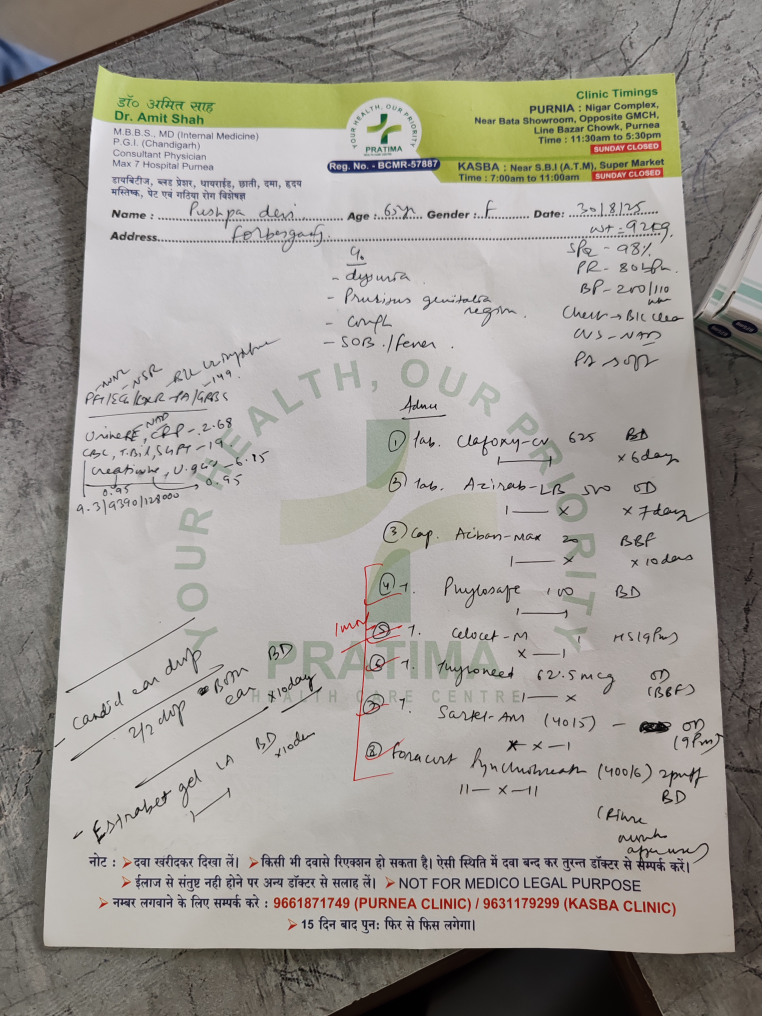 डॉ० अमित साह
Dr. Amit Shah
M.B.B.S., MD (Internal Medicine)
P.G.I. (Chandigarh)
Consultant Physician
Max 7 Hospital Purnea
डायबिटीज, ब्लड प्रेशर, थायराईड, छाती, दमा, हृदय
मस्तिष्क, पेट एवं गठिया रोग विशेषज्ञ
YOUR HEALTH, OUR PRIORITY
PRATIMA
HEALTH CARE CENTRE
Reg. No. - BCMR-57887
Clinic Timings
PURNIA : Nigar Complex,
Near Bata Showroom, Opposite GMCH,
Line Bazar Chowk, Purnea
Time : 11:30am to 5:30pm
SUNDAY CLOSED
KASBA : Near S.B.I (A.T.M), Super Market
Time : 7:00am to 11:00am SUNDAY CLOSED
Name : Pushpa devi Age : 65yr Gender : F Date: 30/8/25
Address Forbesganj wt = 92kg
- dysuria
- Pruritus genitalia region
- Cough
- SOB / fever
SPO2 - 98%
PR - 80 bpm
BP - 200/110
Chest → B/L clear
CVS - NAD
PA soft
Urine RE, CRP - 2.68
NAD
CBC, T.Bil, SGPT - 19
Creatinine, U. - 6.15
0.95 0.95
9.3/9390/128000
YOUR HEALTH, OUR PRIORITY
PRATIMA
HEALTH CARE CENTRE
Advice
① Tab. Clafoxy-CV 625 BD
x 6 days
② Tab. Azirab-LB 500 OD
1 — x x 7 days
③ Cap. Aciban-Max 20 BBF
1 — x x 10 days
④ T. Phylosafe 100 BD
⑤ T. Celocet-M 1 HS (9Pm)
x — 1
⑥ T. Thyroneed 62.5 mcg OD
1 — x (BBF)
⑦ T. Sartel-Am (40/5) - OD
x — x — 1 (9Pm)
⑧ Foracort Synchrobreath (400/6) 2 puff
11 — x — 11 BD
(Rinse mouth after use)
- Candid ear drop BD
2/2 drop Both ear x 10 day
- Estrabet gel LA BD x 10 days
नोट : ➤ दवा खरीदकर दिखा लें। ➤ किसी भी दवासे रिएक्शन हो सकता है। ऐसी स्थिति में दवा बन्द कर तुरन्त डॉक्टर से सम्पर्क करें।
➤ ईलाज से संतुष्ट नही होने पर अन्य डॉक्टर से सलाह लें। ➤ NOT FOR MEDICO LEGAL PURPOSE
➤ नम्बर लगवाने के लिए सम्पर्क करे : 9661871749 (PURNEA CLINIC) / 9631179299 (KASBA CLINIC)
➤ 15 दिन बाद पुन: फिर से फिस लगेगा।